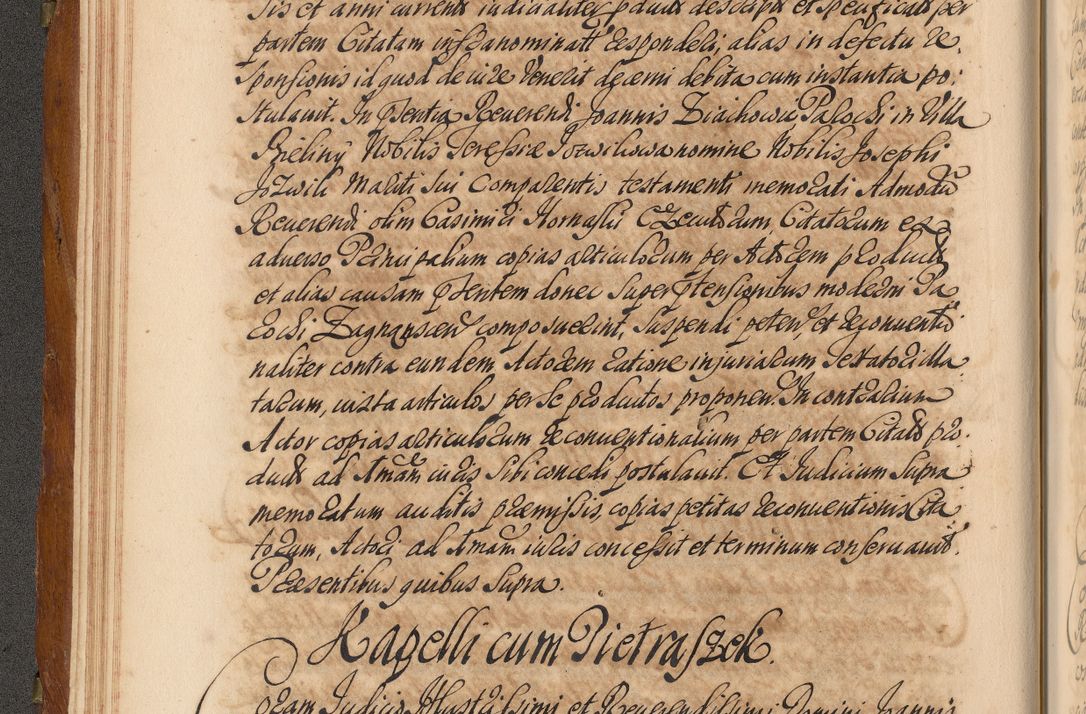 sis et anni currents iudicialiter p ducts descripts et specificats per
partem Citatam infranominatt Responderi, alias in defectu re.
sponsionis id quod de iure venerit decerni debita cum instantia po:
stulavit. In Pntia Reverendi Joannis Ziachowicz Parochi in Villa
Bieliny Nobilis Teressiae Jozwikowa nomine Nobilis Josephi
Jozwik Mariti sui Comparentis testamenti memorati Admodu
Reverendi olim Casimiri Hornaski Executorum, Citatorum ex
adverso Principalium copias articulorum per Actorem products
et alias causam pntem donec super ptensionibus moderni Pa
rochi Zagnansen composuerint, suspendi peten, et reconventio
naliter contra eundem Actorem ratione injuriarum Testatori illa
tarum, iuxta articulos per se productos proponen. In contrarium
Actor copias articulorum reconventionalium per partem Citats pro.
ducts ad Amam iuris sibi concedi postulavit. Et Judicium supra
memoratum auditis praemissis, copias petitas reconventionis Cita
torum, Actori ad Amam iuris concessit et terminum conservavit.
Praesentibus quibus supra.
Kapelli cum Pietraszek.
Coram Judicio Illustrissimi et Reverendissimi Domini Joannis